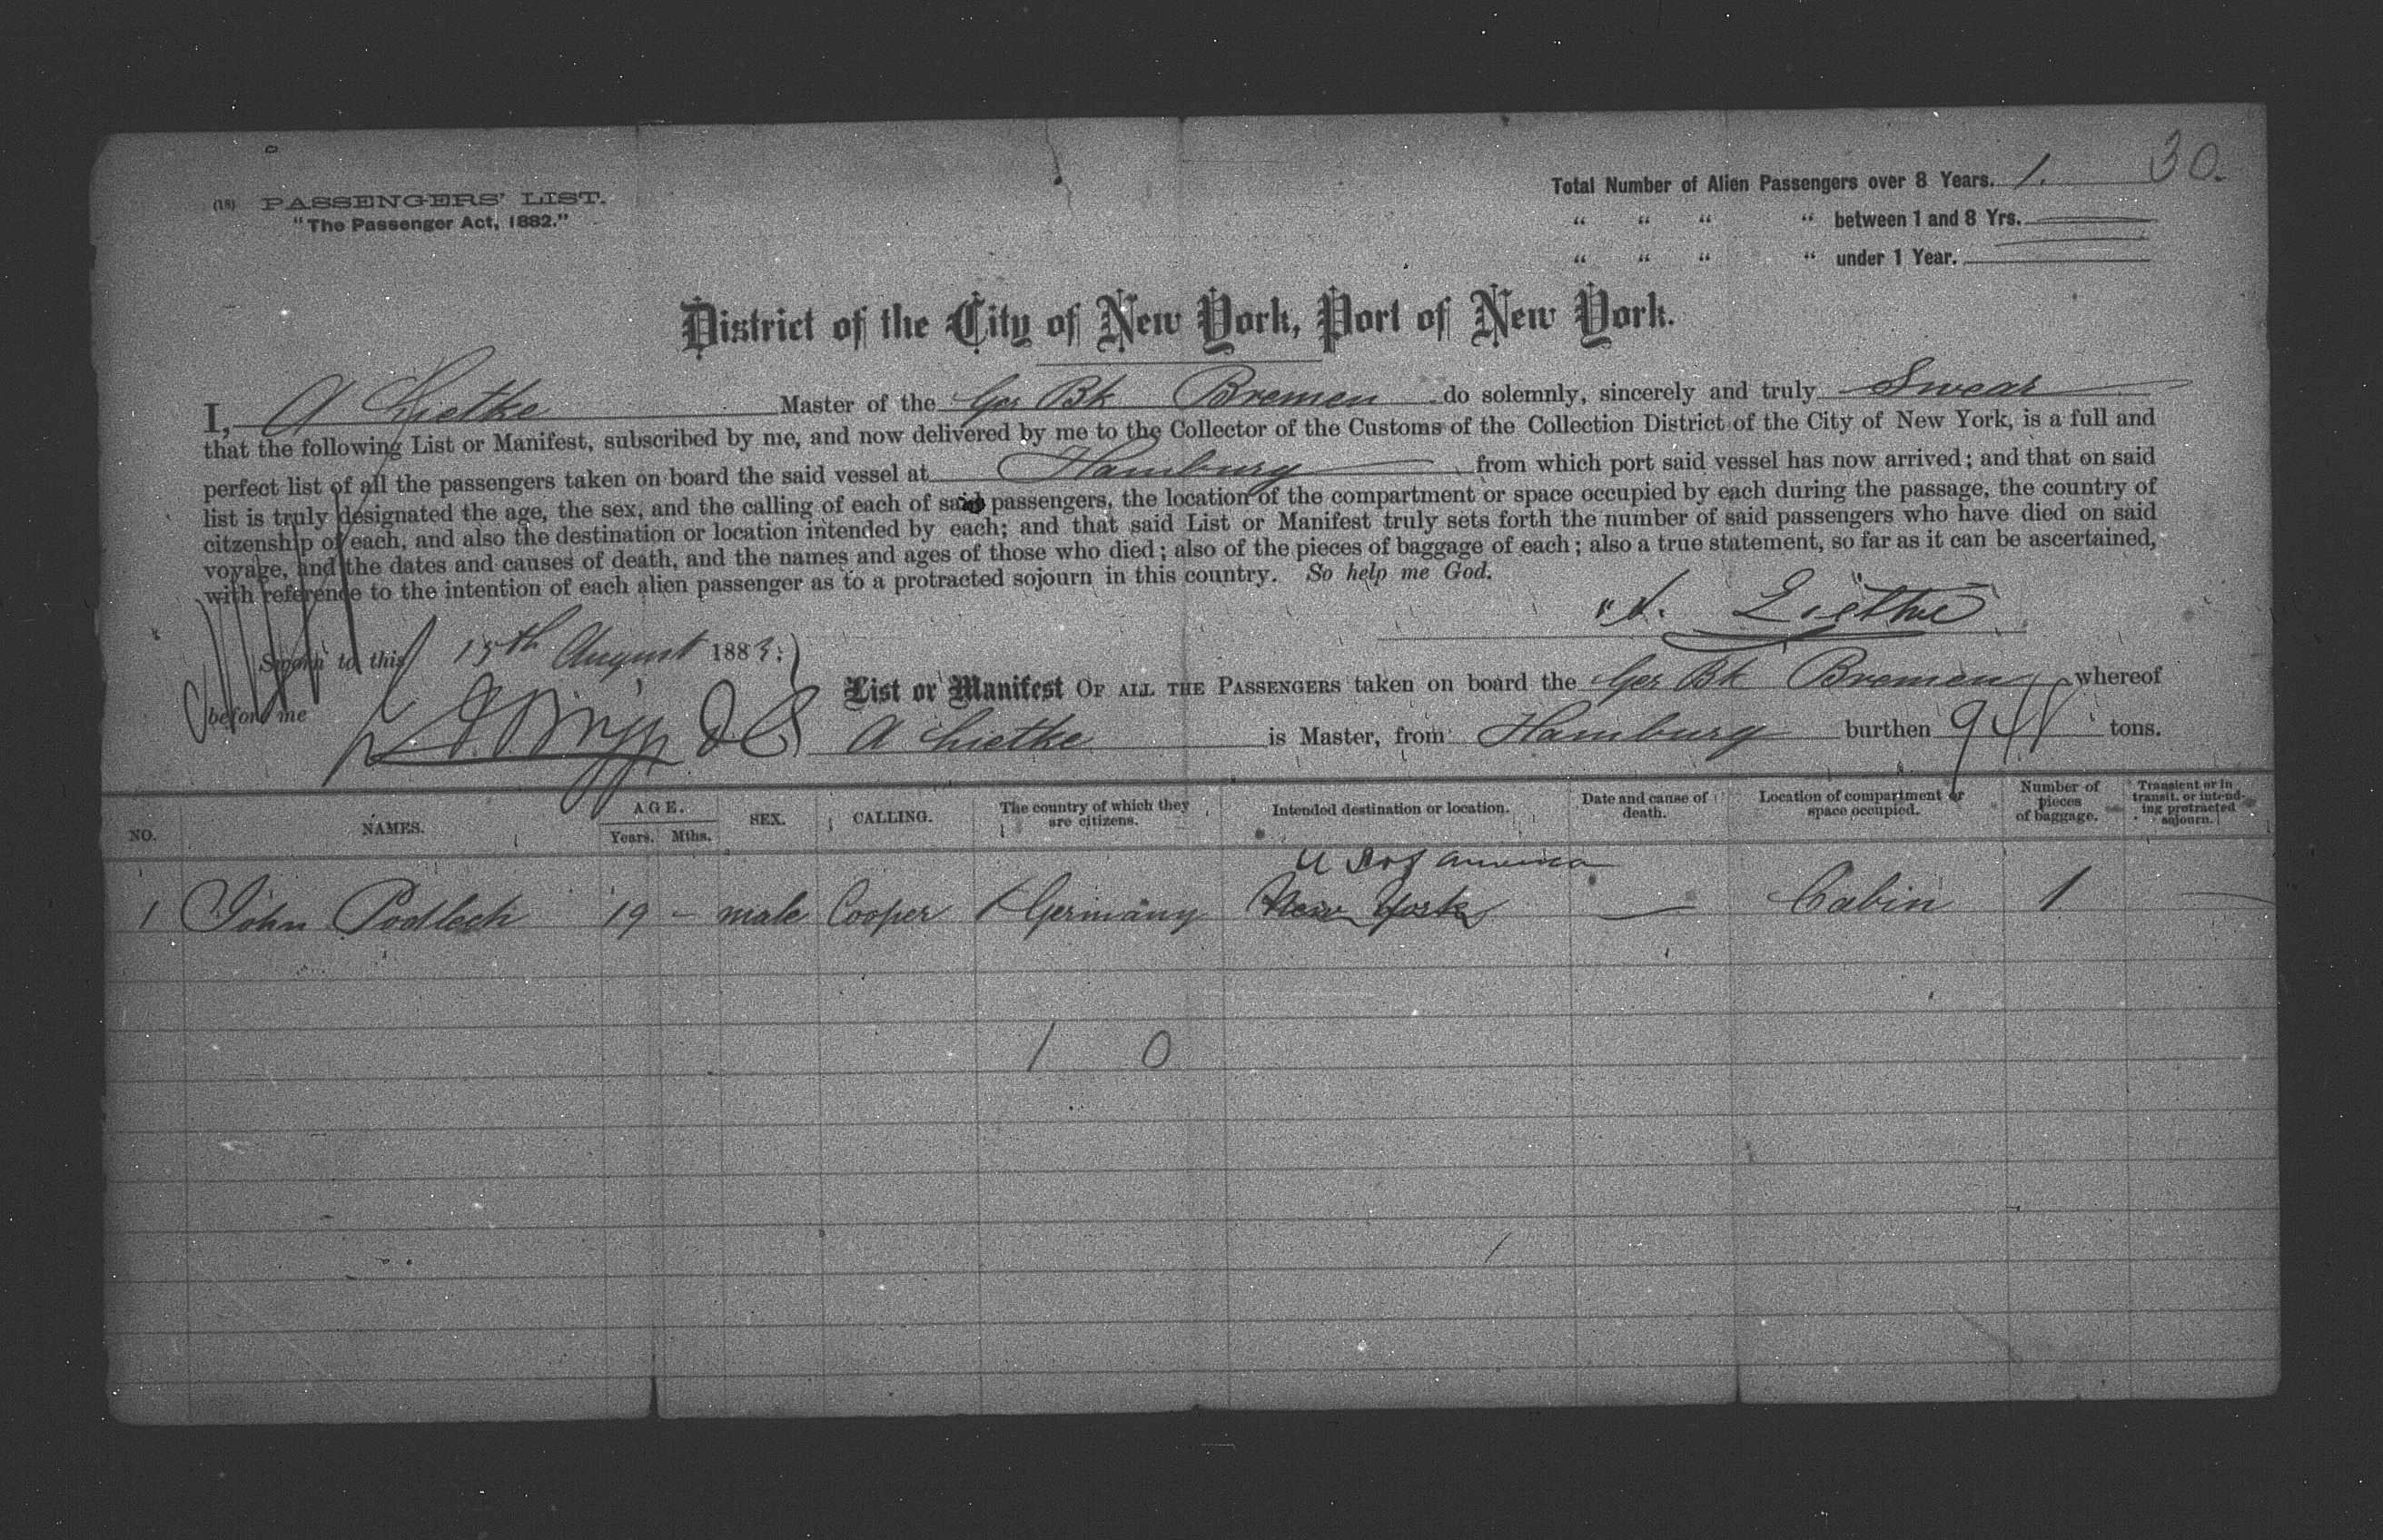 30.
(18) PASSENGERS' LIST.
"The Passenger Act, 1882."
Total Number of Alien Passengers over 8 Years. 1.
" " " " between 1 and 8 Yrs.
" " " " under 1 Year.
District of the City of New York, Port of New York.
I, A Lietke Master of the Ger Bk Bremen do solemnly, sincerely and truly Swear
that the following List or Manifest, subscribed by me, and now delivered by me to the Collector of the Customs of the Collection District of the City of New York, is a full and
perfect list of all the passengers taken on board the said vessel at Hamburg from which port said vessel has now arrived; and that on said
list is truly designated the age, the sex, and the calling of each of said passengers, the location of the compartment or space occupied by each during the passage, the country of
citzenship of each, and also the destination or location intended by each; and that said List or Manifest truly sets forth the number of said passengers who have died on said
voyage, and the dates and causes of death, and the names and ages of those who died; also of the pieces of baggage of each; also a true statement, so far as it can be ascertained,
with reference to the intention of each alien passenger as to a protracted sojourn in this country. So help me God.
A. Liethe
Sworn to this 15th August 1883.
before me
List or Manifest OF ALL THE PASSENGERS taken on board the Ger Bk Bremen whereof
A Lietke is Master, from Hamburg burthen tons.
NO. NAMES. AGE. Years. Mths. SEX. CALLING. The country of which they are citizens. Intended destination or location. Date and cause of death. Location of compartment or space occupied. Number of pieces of baggage. Transient or in transit, or intending protracted sojourn.
U S of America
1 John Podlech 19 – male Cooper Germany New York — Cabin 1 —
1 0